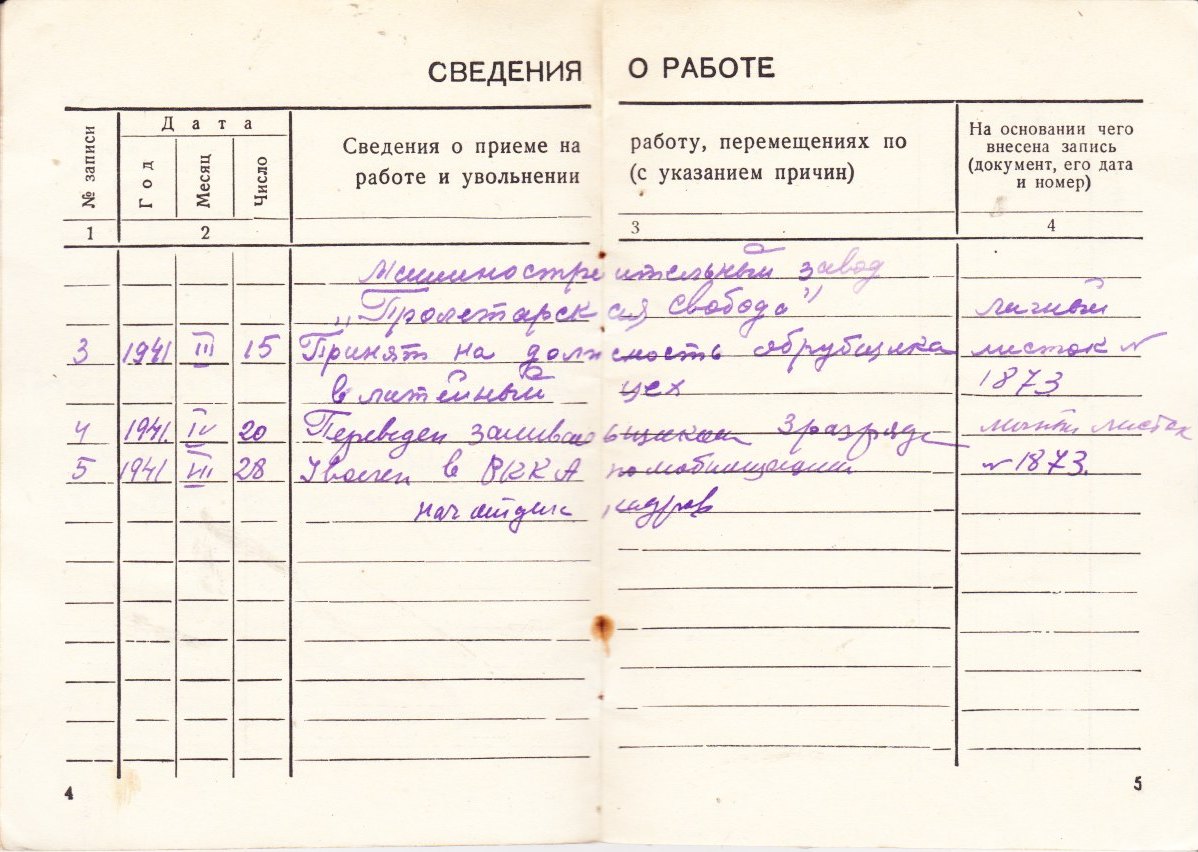 СВЕДЕНИЯ О РАБОТЕ
№ записи
Дата
Год
Месяц
Число
Сведения о приеме на работу, перемещениях по
работе и увольнении (с указанием причин)
На основании чего
внесена запись
(документ, его дата
и номер)
1 2 3 4
Машиностроительный завод
„Пролетарская свобода" личный
3 1941 III 15 Принят на должность обрубщика листок №
в литейный цех 1873
4 1941. IV 20 Переведен заливальщиком 3 разряда листок
5 1941 28 Уволен в РККА по мобилизации № 1873.
нач отдела кадров
4
5